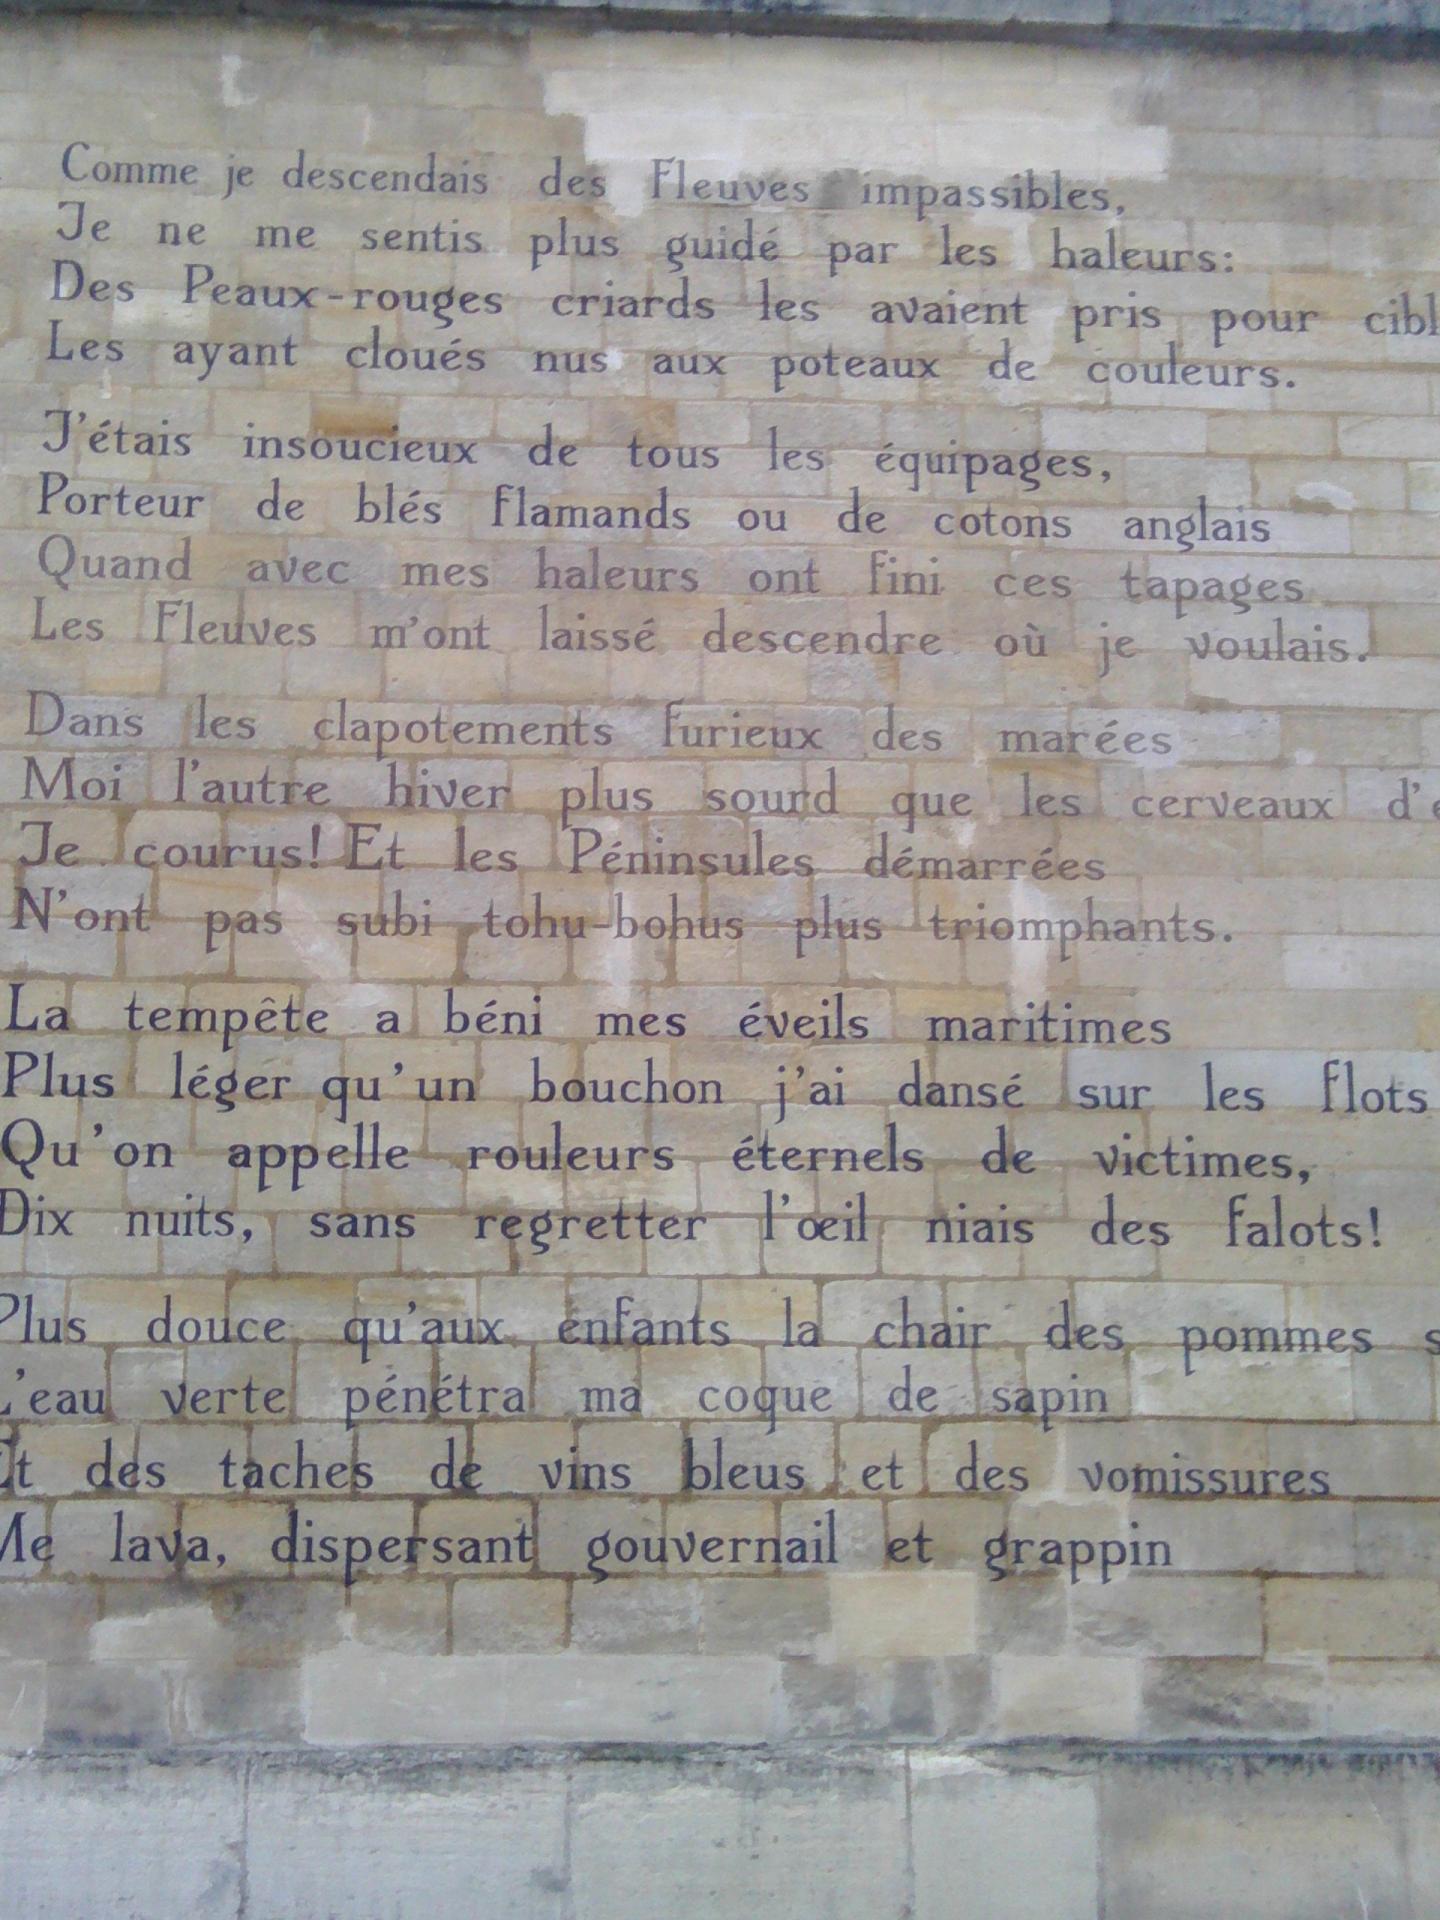 Comme je descendais des Fleuves impassibles,
Je ne me sentis plus guidé par les haleurs:
Des Peaux-rouges criards les avaient pris pour cibl
Les ayant cloués nus aux poteaux de couleurs.
J'étais insoucieux de tous les équipages,
Porteur de blés flamands ou de cotons anglais
Quand avec mes haleurs ont fini ces tapages
Les Fleuves m'ont laissé descendre où je voulais.
Dans les clapotements furieux des marées
Moi l'autre hiver plus sourd que les cerveaux d'e
Je courus! Et les Péninsules démarrées
N'ont pas subi tohu-bohus plus triomphants.
La tempête a béni mes éveils maritimes
Plus léger qu'un bouchon j'ai dansé sur les flots
Qu'on appelle rouleurs éternels de victimes,
Dix nuits, sans regretter l'œil niais des falots!
Plus douce qu'aux enfants la chair des pommes s
L'eau verte pénétra ma coque de sapin
Et des taches de vins bleus et des vomissures
Me lava, dispersant gouvernail et grappin